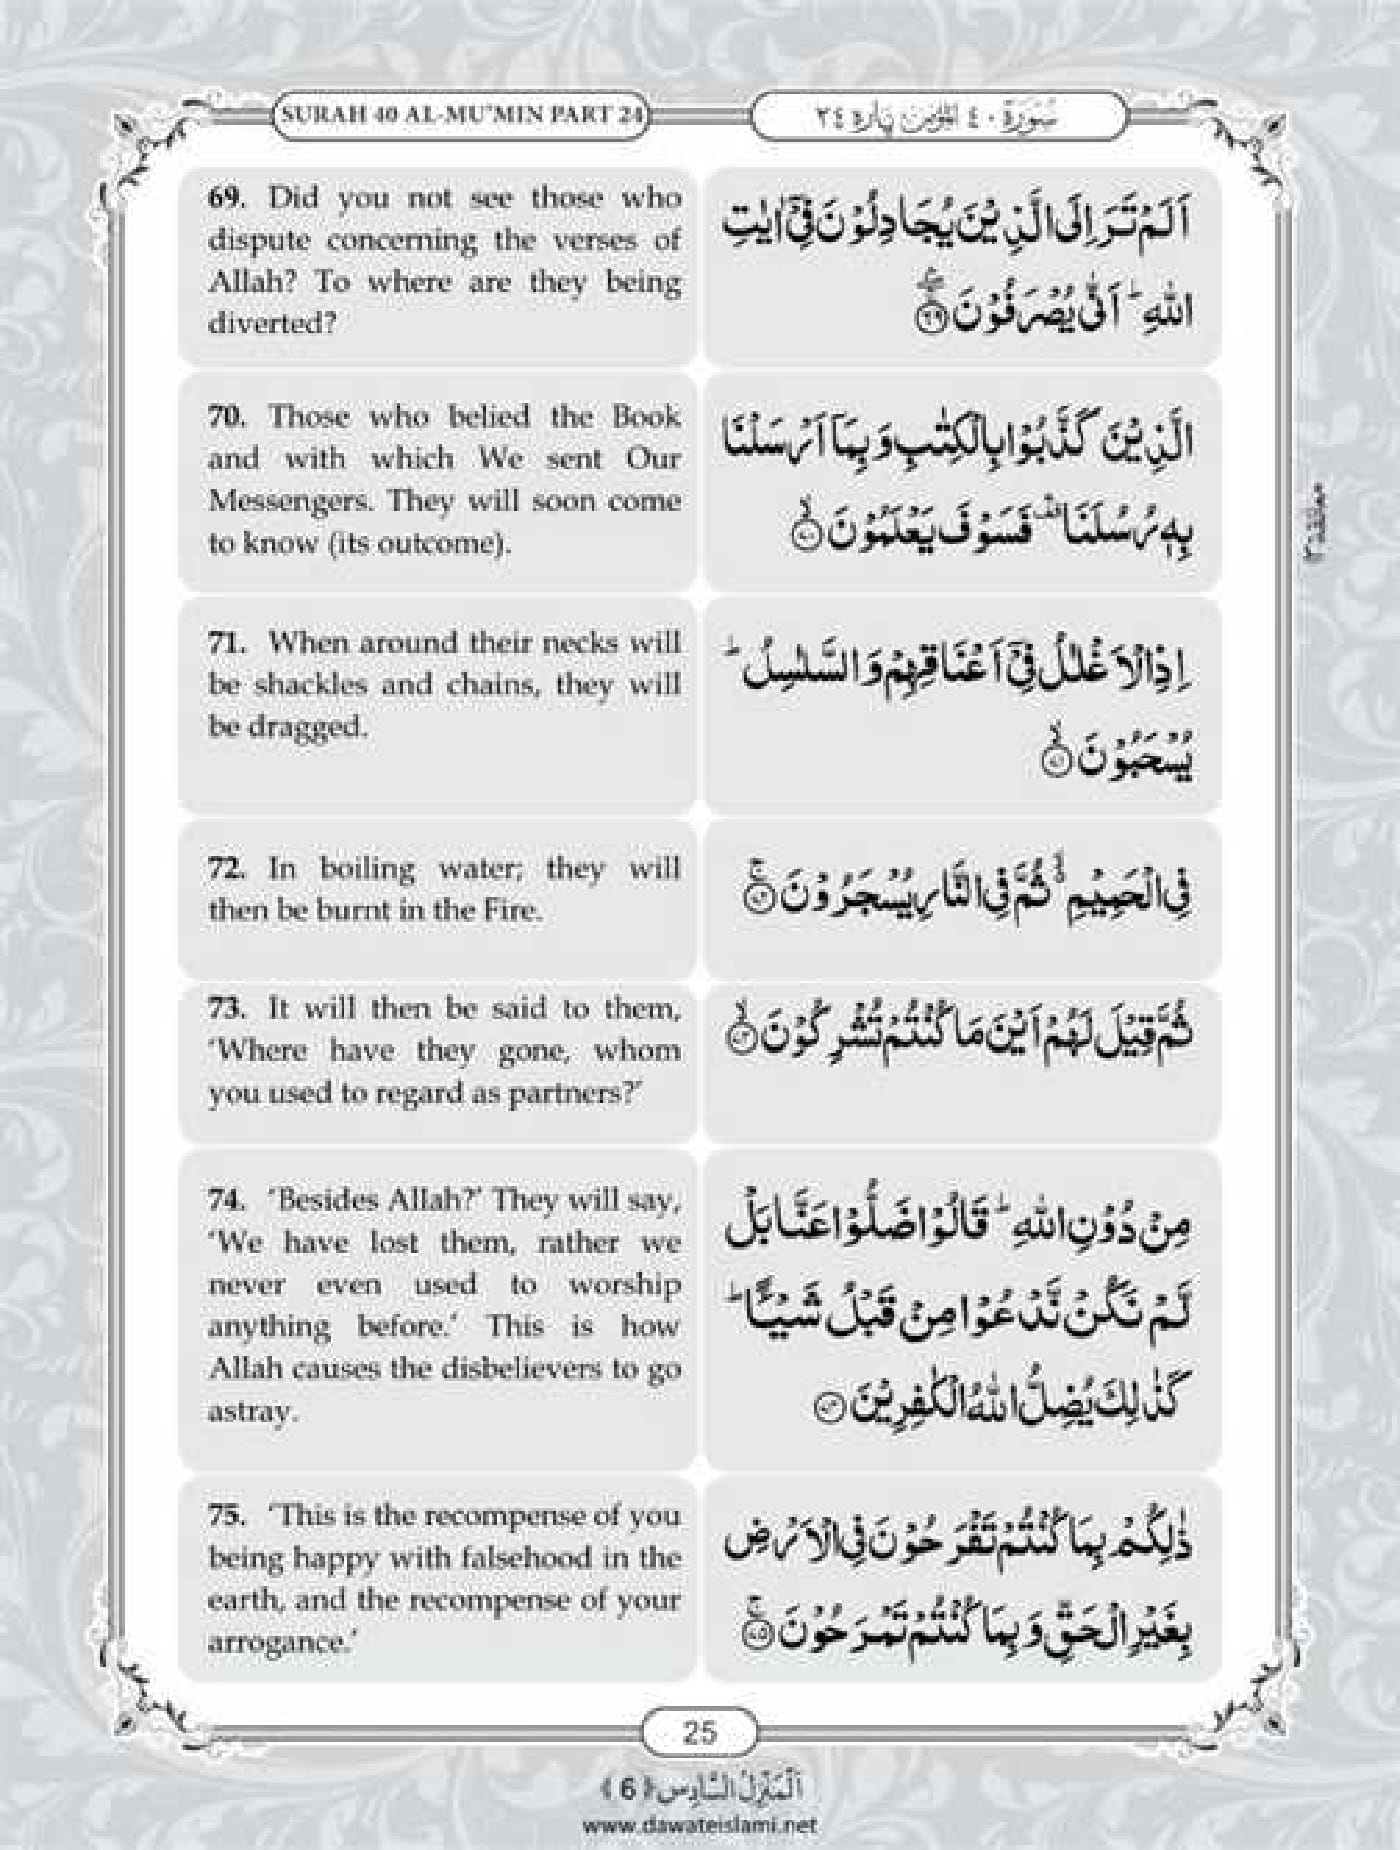 SURAH 40 AL-MU'MIN PART 24
سُوْرَةٌ ٤٠ الْمُؤْمِن پَارَه ٢٤
69. Did you not see those who
dispute concerning the verses of
Allah? To where are they being
diverted?
اَلَمْ تَرَ اِلَى الَّذِيْنَ يُجَادِلُوْنَ فِيْۤ اٰيٰتِ
اللّٰهِ ؕ اَنّٰى يُصْرَفُوْنَ ﴿۶۹﴾
70. Those who belied the Book
and with which We sent Our
Messengers. They will soon come
to know (its outcome).
الَّذِيْنَ كَذَّبُوْا بِالْكِتٰبِ وَ بِمَاۤ اَرْسَلْنَا
بِهٖ رُسُلَنَا ۛ۫ فَسَوْفَ يَعْلَمُوْنَ ۙ﴿۷۰﴾
71. When around their necks will
be shackles and chains, they will
be dragged.
اِذِ الْاَغْلٰلُ فِيْۤ اَعْنَاقِهِمْ وَ السَّلٰسِلُ ؕ
يُسْحَبُوْنَ ۙ﴿۷۱﴾
72. In boiling water; they will
then be burnt in the Fire.
فِي الْحَمِيْمِ ۬ۙ ثُمَّ فِي النَّارِ يُسْجَرُوْنَ ۚ﴿۷۲﴾
73. It will then be said to them,
‘Where have they gone, whom
you used to regard as partners?’
ثُمَّ قِيْلَ لَهُمْ اَيْنَ مَا كُنْتُمْ تُشْرِكُوْنَ ۙ﴿۷۳﴾
74. ‘Besides Allah?’ They will say,
‘We have lost them, rather we
never even used to worship
anything before.‘ This is how
Allah causes the disbelievers to go
astray.
مِنْ دُوْنِ اللّٰهِ ؕ قَالُوْا ضَلُّوْا عَنَّا بَلْ
لَّمْ نَكُنْ نَّدْعُوْا مِنْ قَبْلُ شَيْـًٔا ؕ
كَذٰلِكَ يُضِلُّ اللّٰهُ الْكٰفِرِيْنَ ﴿۷۴﴾
75. ‘This is the recompense of you
being happy with falsehood in the
earth, and the recompense of your
arrogance.’
ذٰلِكُمْ بِمَا كُنْتُمْ تَفْرَحُوْنَ فِي الْاَرْضِ
بِغَيْرِ الْحَقِّ وَ بِمَا كُنْتُمْ تَمْرَحُوْنَ ۚ﴿۷۵﴾
25
اَلْمَنْزِلُ السَّادِس ﴿6﴾
www.dawateislami.net